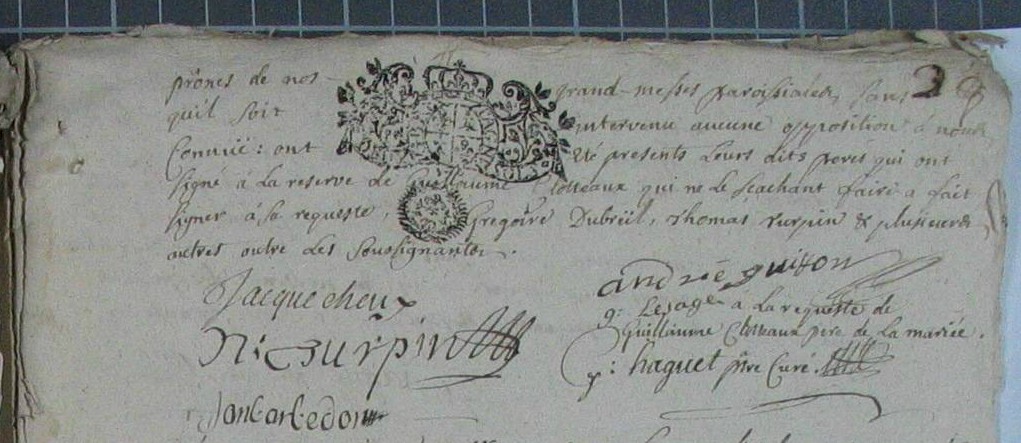 prônes de nos grand-messes paroissiales, sans
qu'il soit intervenu aucune opposition à nous
Connue: ont été présents Leurs dits peres qui ont
signé à La reserve de Guillaume Clotteaux qui ne le scachant faire a fait
signer à sa requeste, Gregoire Dubreüil, Thomas Turpin & plusieurs
autres outre Les Soussignants.
Jacque cheux
andrié guitton
g: Lesage a La requeste de
Guillaume Clotteaux pere de La mariée.
N: Turpin
p: haguet ptre Curé.